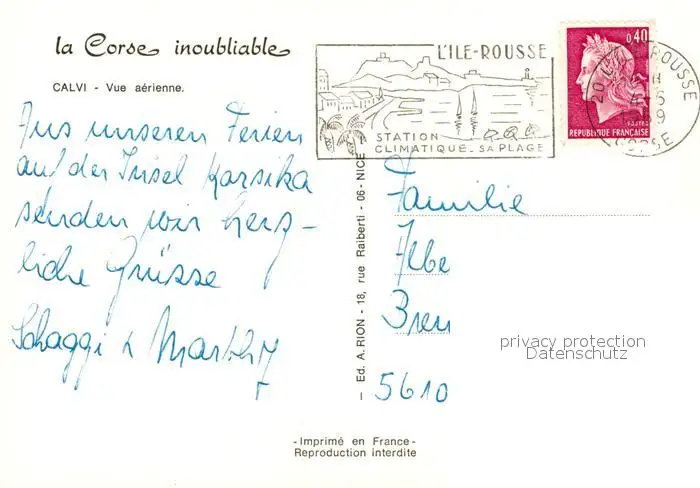 la Corse inoubliable
CALVI - Vue aérienne.
Aus unseren Ferien
auf der Insel Korsika
senden wir herz-
liche Grüsse
Schaggi &
L'ILE-ROUSSE
STATION
CLIMATIQUE - SA PLAGE
0,40
POSTES
REPUBLIQUE FRANÇAISE
20 L'ILE-ROUSSE
CORSE
— Ed. A. RION - 18, rue Raiberti - 06 - NICE
Familie
5610
privacy protection
Datenschutz
-Imprimé en France-
Reproduction interdite